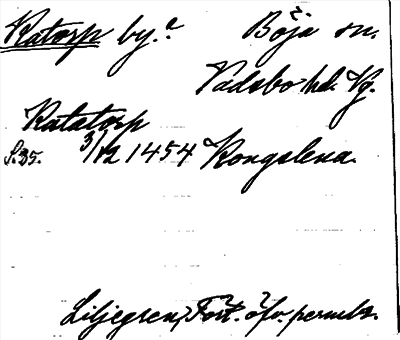 Ratorp by.? Böja sn.
Vadsbo hd. Vg.
Ratatorp
S. 35. 3/12 1454 Kongslena.
Liljegren, Fört. öfv. permbr.